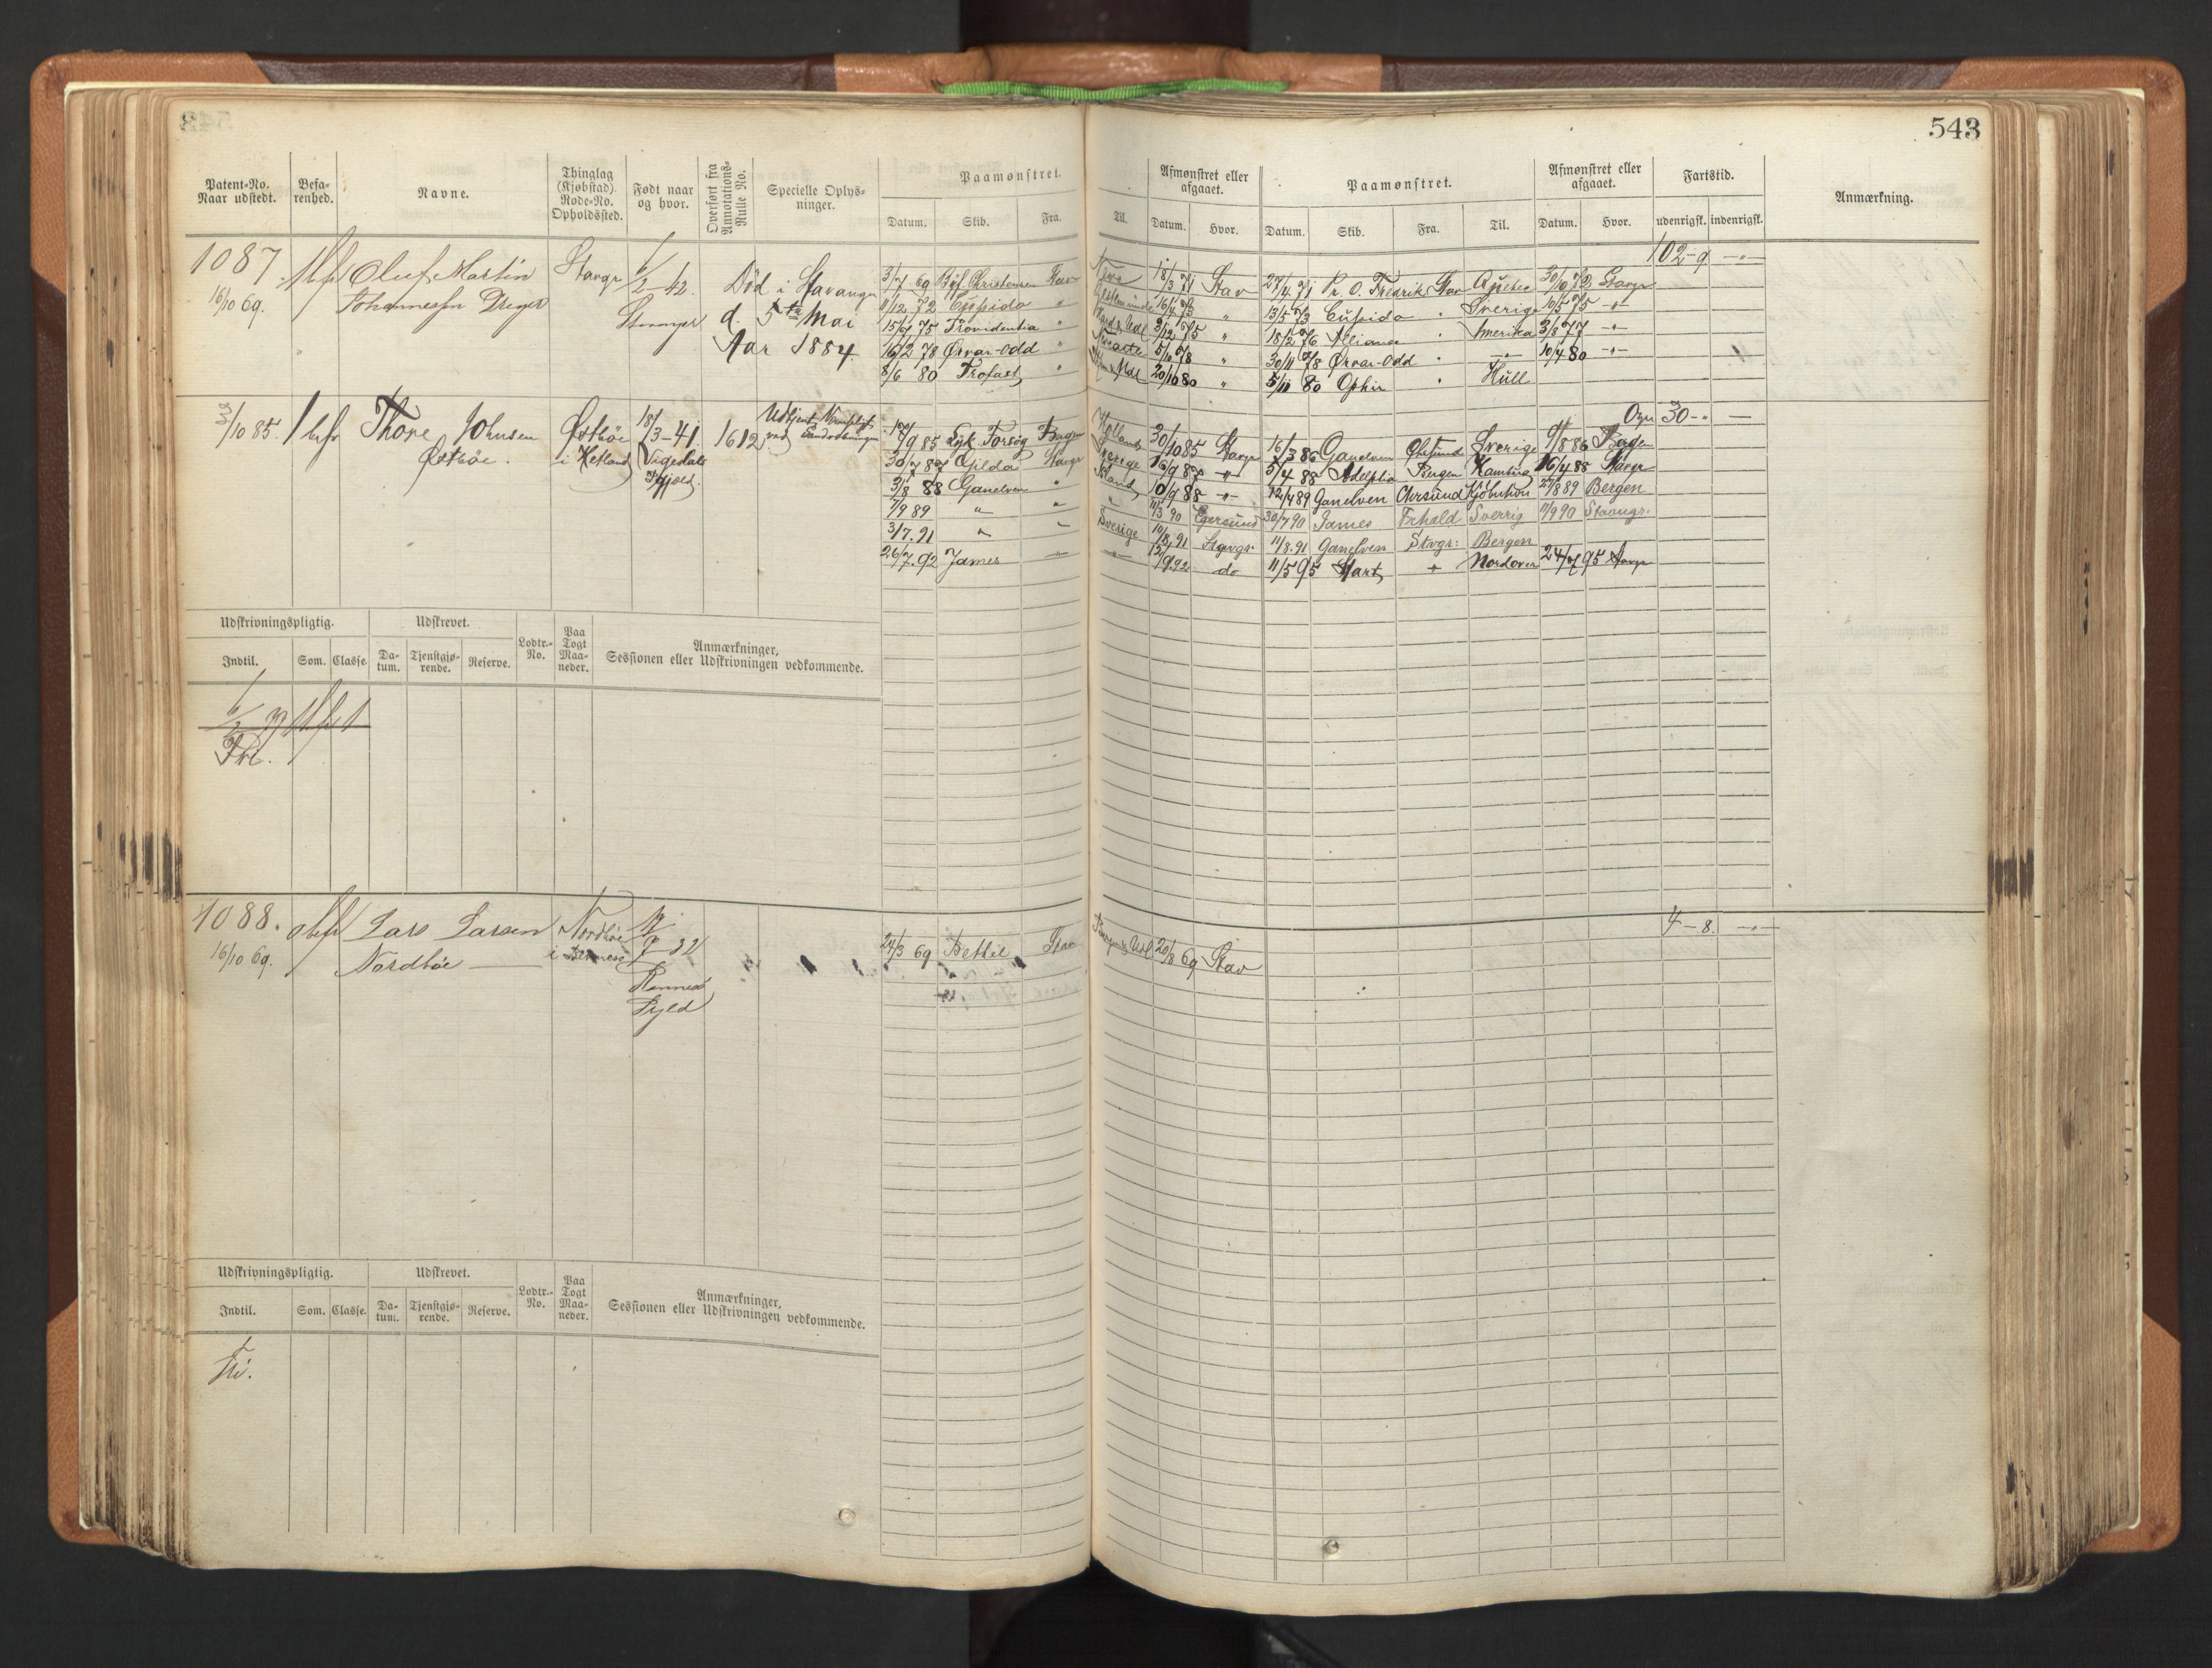 543
Patent-No. Naar udstedt.
Befarenhed.
Navne.
Thinglag (Kjøbstad). Rode-No. Opholdssted.
Født naar og hvor.
Overført fra Annotations-Rulle No.
Specielle Oplysninger.
Paamønstret.
Datum. Skib. Fra. Til.
Afmønstret eller afgaaet.
Datum. Hvor.
Paamønstret.
Datum. Skib. Fra. Til.
Afmønstret eller afgaaet.
Datum. Hvor.
Fartstid.
udenrigsk. indenrigsk.
Anmærkning.
1087
16/10 69.
Oluf Martin
Johannessen Dreyer
Stavgr
6/2-42.
Stavanger
Død i Stavanger
d. 5te Mai
Aar 1884
102-9
3/7 69 Christensen Stav 18/3 71 Stav 27/4 71 Pr. O. Fredrik Stav 30/10 72 Stavgr
11/12 72 Cupido " " 13/5 73 Cupido " Sverige 10/5 75
15/6 75 Providentia " 3/12 75 " 18/2 76 Alliance " Amerika 3/8 77
16/2 78 Ørvar-Odd " 5/10 78 " 30/11 78 Ørvar-Odd " 10/4 80
8/6 80 Trofast " 20/10 80 " 5/11 80 Ophir " Hull
3/10 85. 1 befr Thore Johnsen
Østbøe.
Østbøe
i Hetland
18/3-41.
Vigedals
Pgjeld.
1612.
Udtjent Værnepligt
ved Landrulningen
Ovf 30-
/9 85 Forsøg Bergen Holland 30/10 85 Stavgr 16/3 86 Ganelven Sverige /8 86 Bergen
30/7 87 Gilda Stavgr Sverige 16/9 87 5/4 88 Adelphia Bergen Hamburg 16/4 88 Stavgr
3/8 88 Ganelven " Island 10/9 88 12/4 89 Ganelven Kjøbnhvn 27/8 89 Bergen
7/9 89 " " " 11/3 90 Egersund 30/7 90 James Sverrig 11/9 90 Stavngr.
3/7. 91 " " Sverige 10/8. 91 Stavgr. 11/8. 91 Ganelven Stvgr: Bergen
26/7. 92 James 12/9 92 do 11/5 95 Start Nordover 24/ 95 Stavgr
Udskrivningspligtig.
Indtil. Som. Classe.
Udskrevet.
Datum. Tjenstgjørende. Reserve.
Lodtr.-No.
Paa Togt Maaneder.
Anmærkninger,
Sessionen eller Udskrivningen vedkommende.
1088.
16/10 69.
Lars Larsen
Nordbøe
Nordbøe
i Rennesø
/7-32
Rennesø
Pgjeld
4-8.
24/3 69 Bethel Stav 20/8 69 Stav
Udskrivningspligtig.
Indtil. Som. Classe.
Udskrevet.
Datum. Tjenstgjørende. Reserve.
Lodtr.-No.
Paa Togt Maaneder.
Anmærkninger,
Sessionen eller Udskrivningen vedkommende.
Fri.